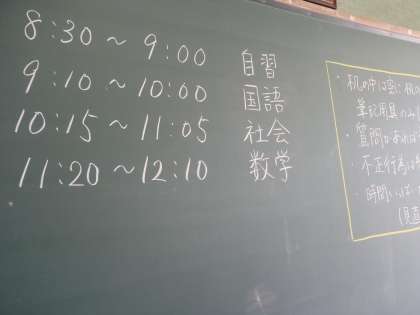 8:30～9:00 自習
9:10～10:00 国語
10:15～11:05 社会
11:20～12:10 数学
・机の中は空に 机の
筆記用具のみ
・質問があれば
・不正行為は
・時間いっぱい
(見直